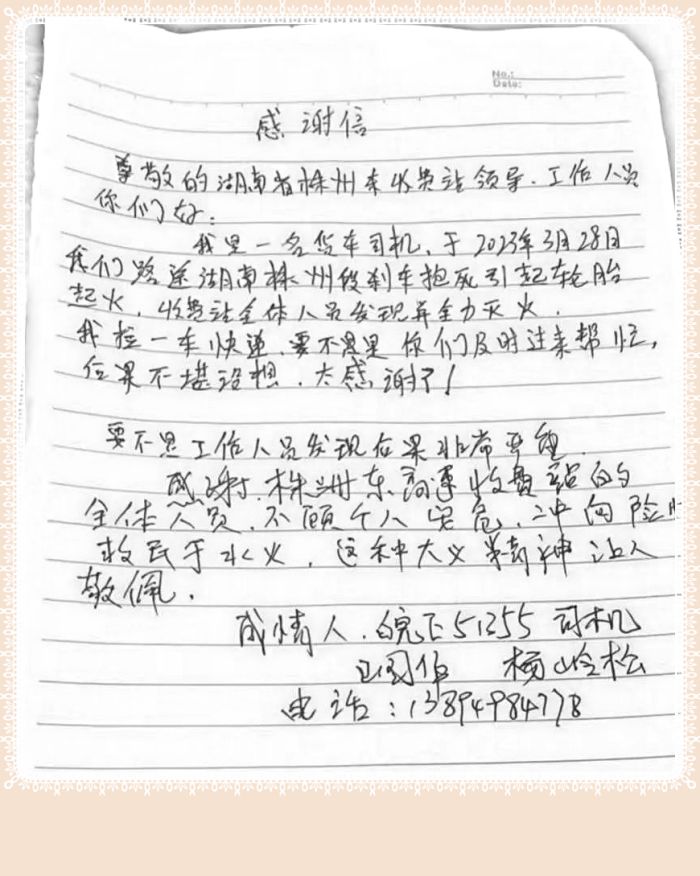 No.:
Date:
感谢信
尊敬的湖南省株州东收费站领导、工作人员
你们好：
我是一名货车司机、于2023年3月28日
我们路途湖南株州段刹车抱死引起轮胎
起火，收费站全体人员发现并全力灭火.
我拉一车快递、要不是是你们及时过来帮忙,
后果不堪设想．太感谢了！
要不是工作人员发现后果非常严重.
感谢．株洲东高速收费站的
全体人员．不顾个人安危．冲向险
救民于水火，这种大义 精神让人
敬佩．
感情人．皖 51355 司机
电话：13894984778